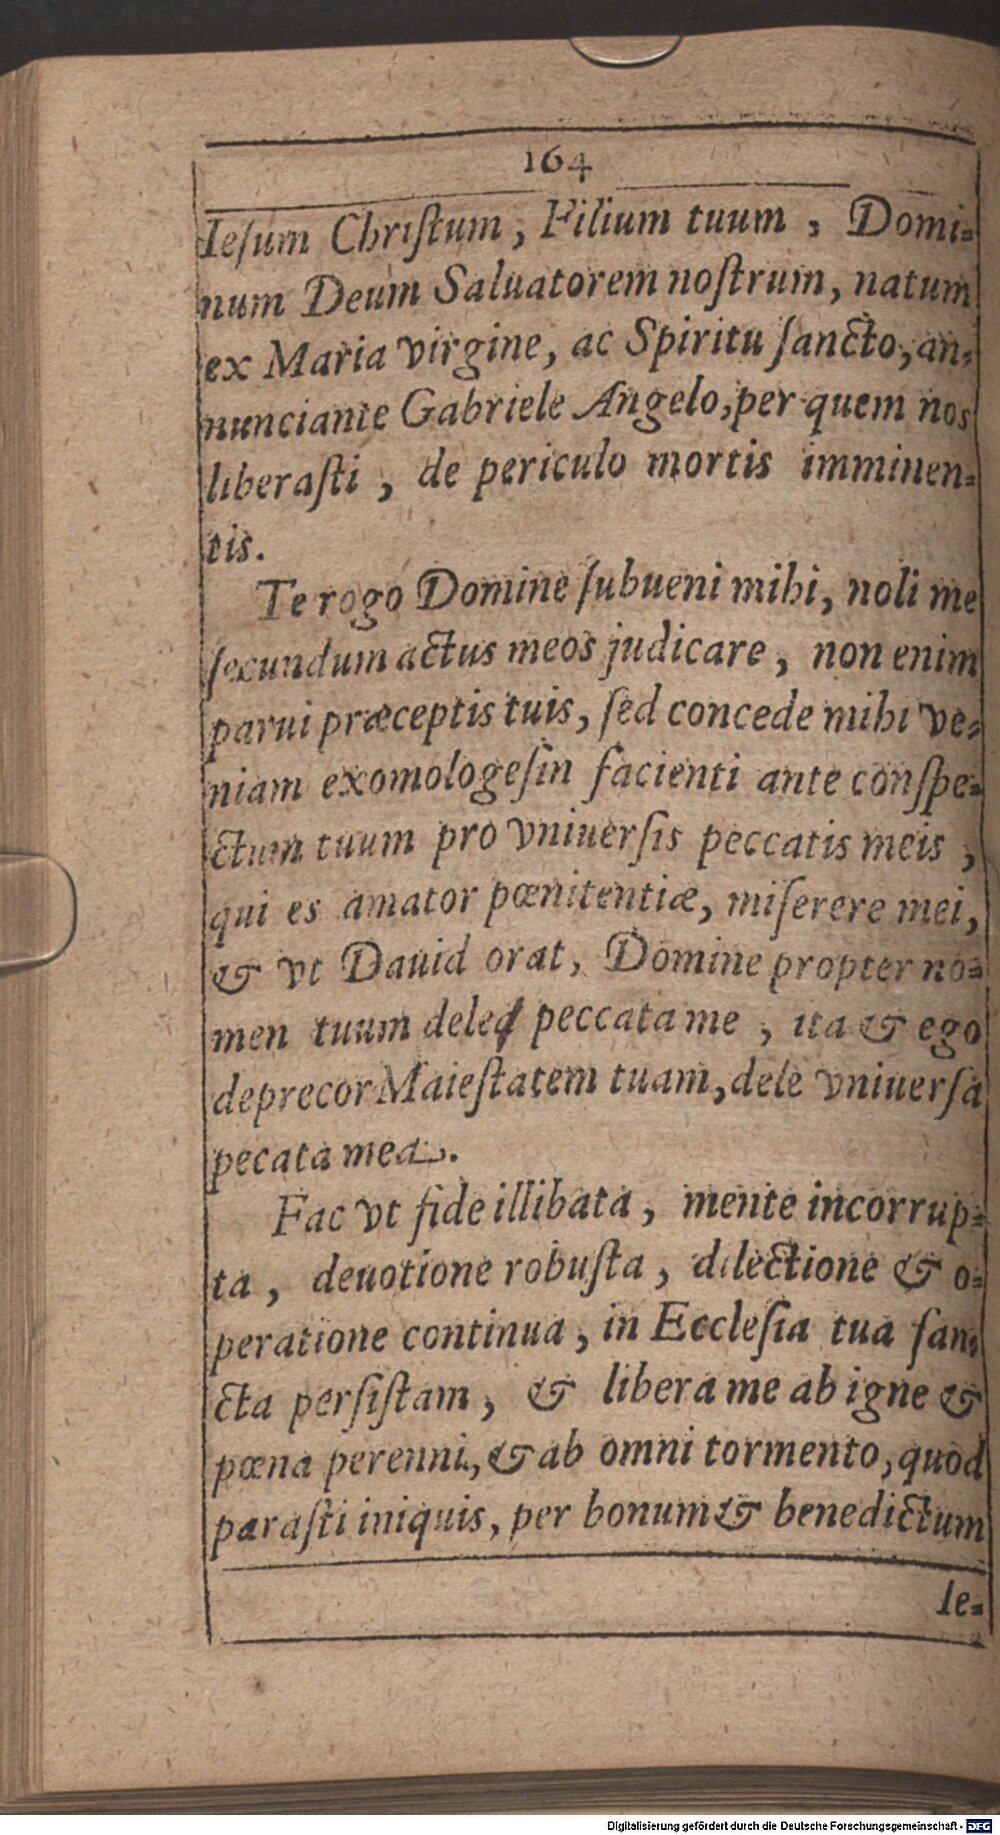 164
Ieſum Chriſtum, Filium tuum, Domi-
num Deum Saluatorem noſtrum, natum
ex Maria virgine, ac Spiritu ſancto, an-
nunciante Gabriele Angelo, per quem nos
liberaſti, de periculo mortis imminen-
tis.
Te rogo Domine ſubueni mihi, noli me
ſecundum actus meos judicare, non enim
parui præceptis tuis, ſed concede mihi ve-
niam exomologeſin facienti ante conſpe-
ctum tuum pro vniuerſis peccatis meis,
qui es amator pœnitentiæ, miſerere mei,
& vt Dauid orat, Domine propter no-
men tuum dele peccata me, ita & ego
deprecor Maieſtatem tuam, dele vniuerſa
pecata mea.
Fac vt fide illibata, mente incorrup-
ta, deuotione robuſta, dilectione & o-
peratione continua, in Eccleſia tua ſan-
cta perſiſtam, & libera me ab igne &
pœna perenni, & ab omni tormento, quod
paraſti iniquis, per bonum & benedictum
Ie-
Digitalisierung gefördert durch die Deutsche Forschungsgemeinschaft - DFG